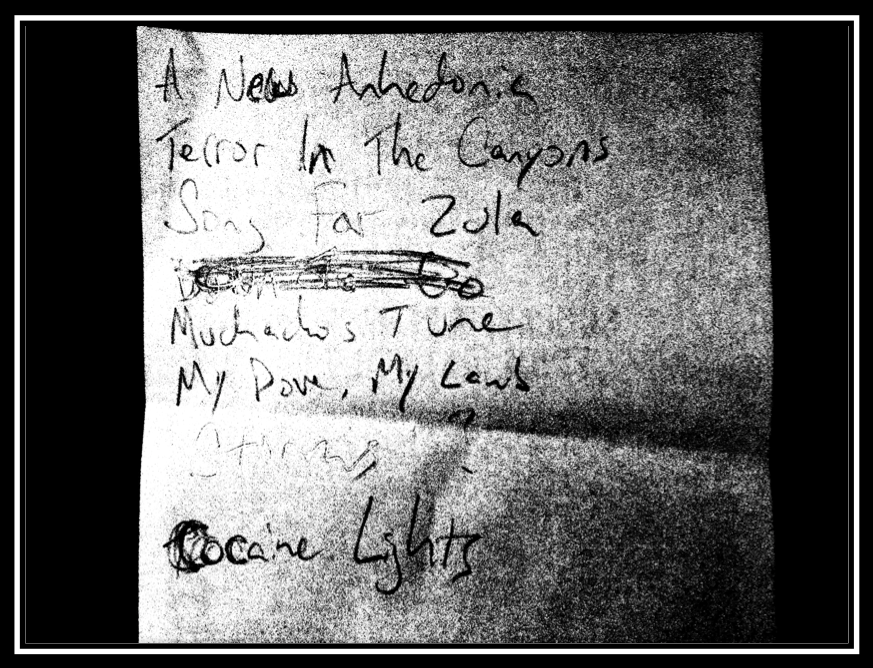 A New Anhedonia
Terror In The Canyons
Song For Zula
Down To Go
Muchacho's Tune
My Dove, My Lamb
?
Cocaine Lights